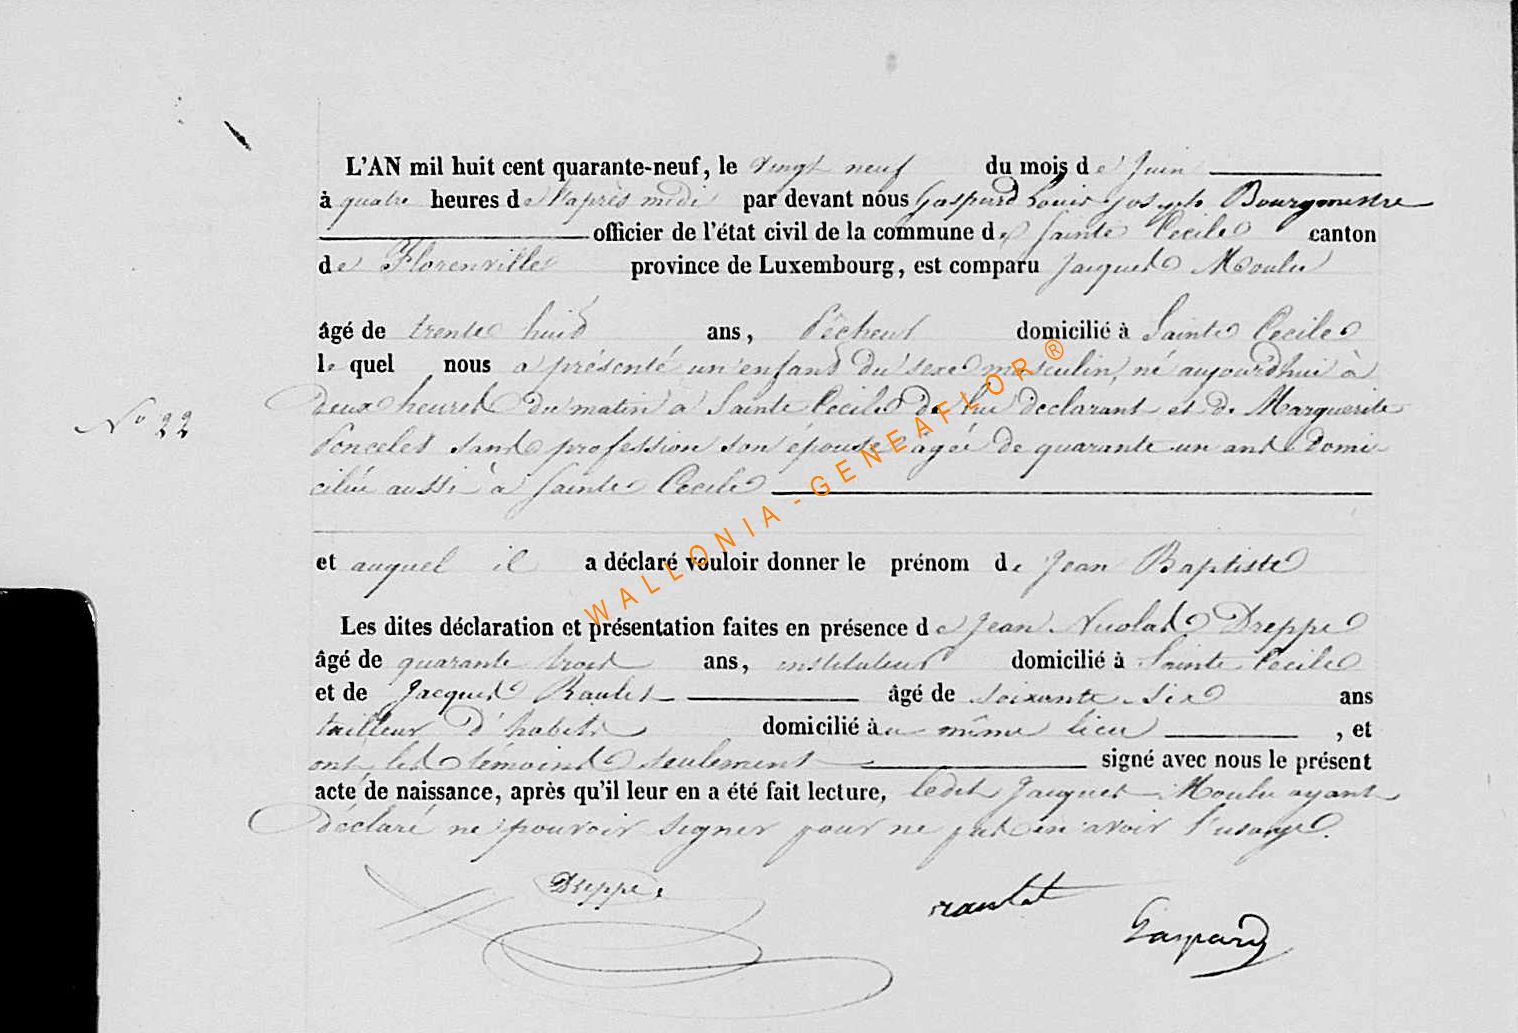 L'AN mil huit cent quarante-neuf, le vingt neuf du mois de Juin
à quatre heures de l'après midi par devant nous Gaspard Louis Joseph Bourgmestre
officier de l'état civil de la commune de Sainte Cecile canton
de Florenville province de Luxembourg, est comparu Jacques Moulu
âgé de trente huit ans, Pêcheur domicilié à Sainte Cecile
lequel nous a présenté un enfant du sexe masculin, né aujourd'hui à
deux heures du matin à Sainte Cecile de lui declarant et de Marguerite
N° 22
Poncelet sans profession son épouse âgée de quarante un ans domi-
ciliée aussi à Sainte Cecile
et auquel il a déclaré vouloir donner le prénom de Jean Baptiste
Les dites déclaration et présentation faites en présence de Jean Nicolas Dreppe
âgé de quarante trois ans, instituteur domicilié à Sainte Cecile
et de Jacques Raulet âgé de soixante six ans
tailleur d'habits domicilié au même lieu, et
ont les témoins seulement signé avec nous le présent
acte de naissance, après qu'il leur en a été fait lecture, ledit Jacques Moulu ayant
déclaré ne pouvoir signer pour ne pas en avoir l'usage.
Dreppe raulet
Gaspard
WALLONIA - GENEAFLOR ®